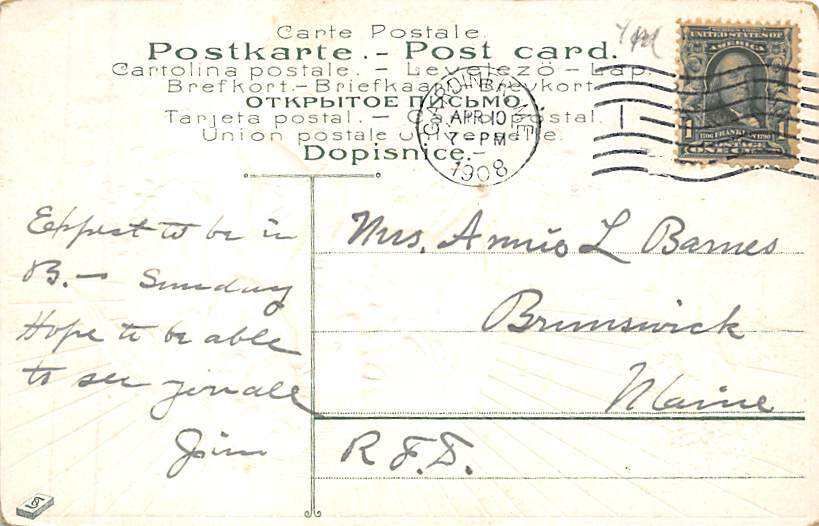 Carte Postale.
Postkarte.- Post card.
Cartolina postale. - Levelező - Lap.
Brefkort.- Briefkaart- Brevkort.
ОТКРЫТОЕ ПИСЬМО.
Tarjeta postal. - Cartão postal.
Union postale universelle.
Dopisnice.-
GARDINER, ME.
APR 10
7-PM
1908
1
UNITED STATES OF
AMERICA
1706 FRANKLIN 1790
1 POSTAGE 1
ONE CENT
Expect to be in
B.- Sunday
Hope to be able
to see you all
Jim
Mrs. Annie L Barnes
Brunswick
Maine
R.F.D.